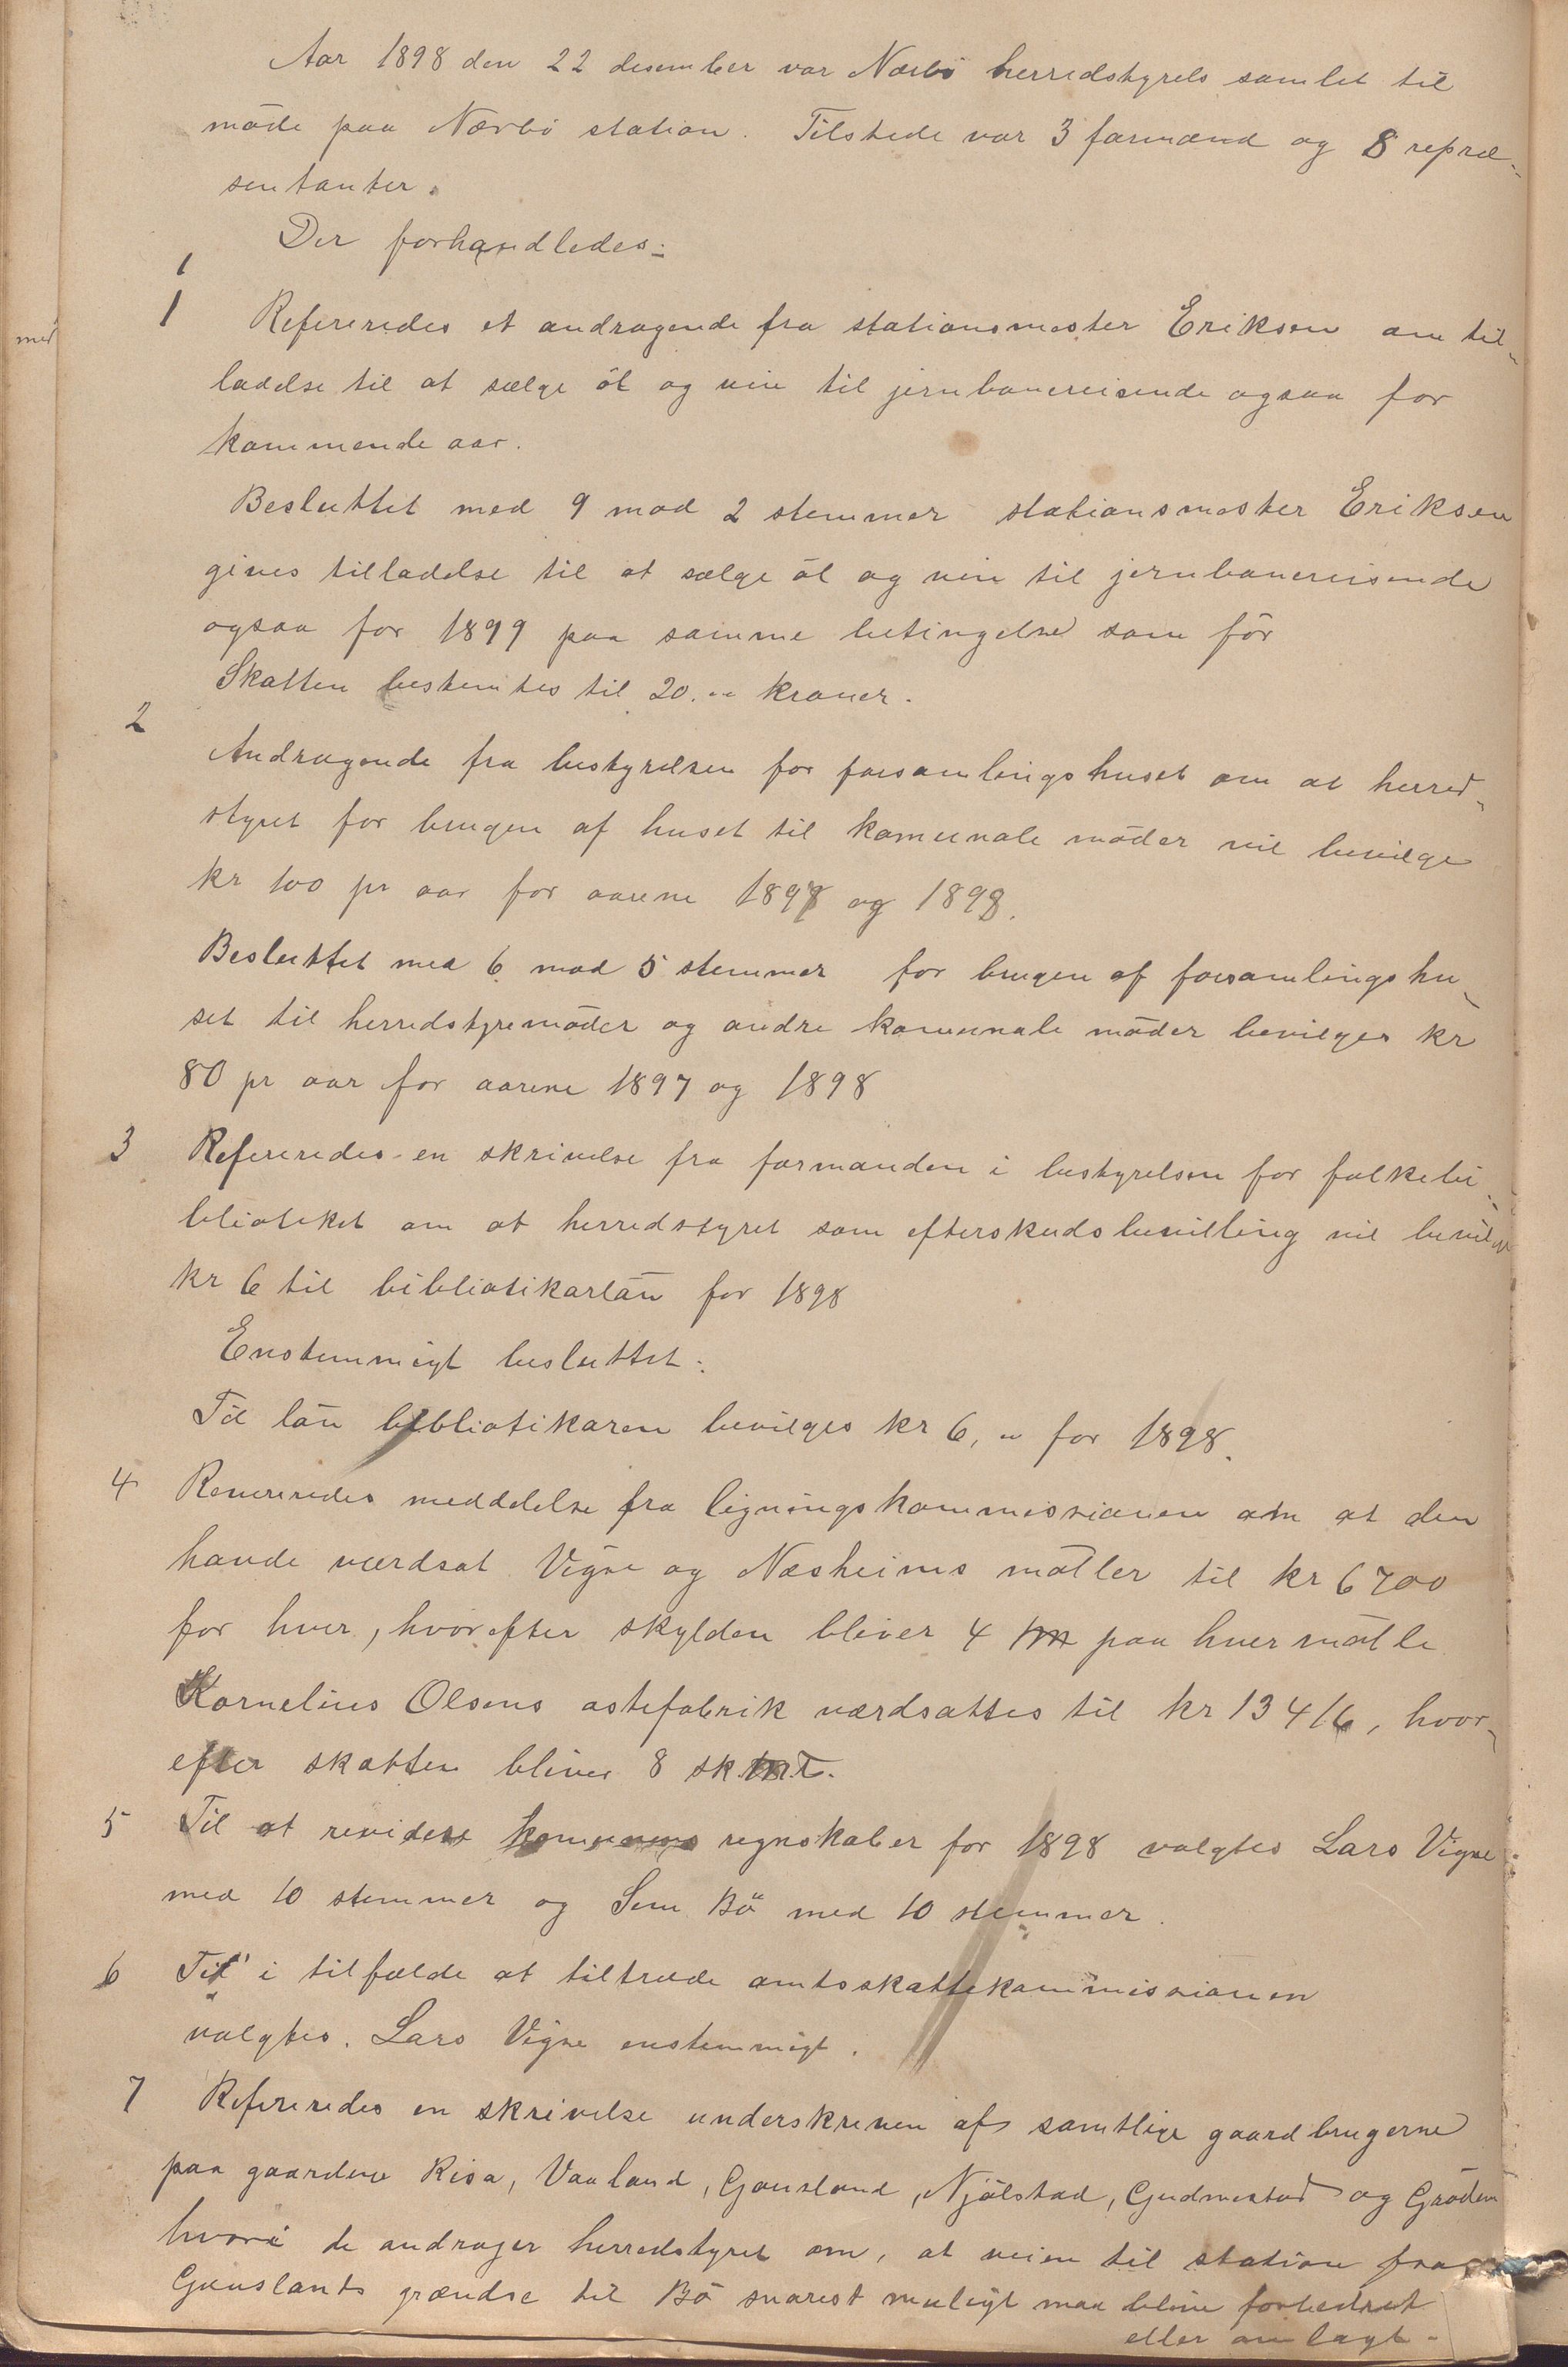 Aar 1898 den 22 desember var Nærbö herredstyrels samlet til
möde paa Nærbö station. Tilstede var 3 formænd og 8 repræ-
sentanter.
Der forhandledes:
1 Refereredes et andragende fra stationsmester Eriksen om til-
ladelse til at sælge öl og vin til jernbanereisende ogsaa for
kommende aar.
Besluttet med 9 mod 2 stemmer stationsmester Eriksen
gives tilladelse til at sælge öl og vin til jernbanereisende
ogsaa for 1899 paa samme betingelse som för
Skatten bestemtes til 20.„ kroner.
2
Andragende fra bestyrelsen for forsamlingshuset om at herred-
styret for brugen af huset til komunale möder vil bevilge
kr 100 pr aar for aarene 1897 og 1898.
Besluttet med 6 mod 5 stemmer for brugen af forsamlingshu-
set til herredstyremöder og andre komunale möder bevilges kr
80 pr aar for aarene 1897 og 1898
3 Refereredes en skrivelse fra formanden i bestyrelsen for folkebi-
blioteket om at herredstyret som efterskudsbevilling vil bevilge
kr 6 til bibliotikarlön for 1898
Enstemmigt besluttet:
Til lön bibliotikaren bevilges kr 6,„ for 1898.
4 Revereredes meddelelse fra ligningskommissionen om at den
havde værdsat Vigre og Næsheims möller til kr 6700
for hver, hvorefter skylden bliver 4 m paa hver mölle
Kornelius Olsens ostefabrik værdsattes til kr 13416, hvor-
efter skatten bliver 8 sk.
5 Til at revidere komunens regnskaber for 1898 valgtes Lars Vigre
med 10 stemmer og Sem Bö med 10 stemmer.
6 Til i tilfælde at tiltræde amtsskattekommissionen
valgtes. Lars Vigre enstemmigt.
7 Refereredes en skrivelse underskreven af samtlige gaardbrugerne
paa gaardene Risa, Vaaland, Gausland, Njölstad, Gudmestad og Gröden
hvori de andrager herredstyret om, at veien til station fra
Gauslands grændse til Bö snarest muligt maa blive forbedret
eller omlagt.
med